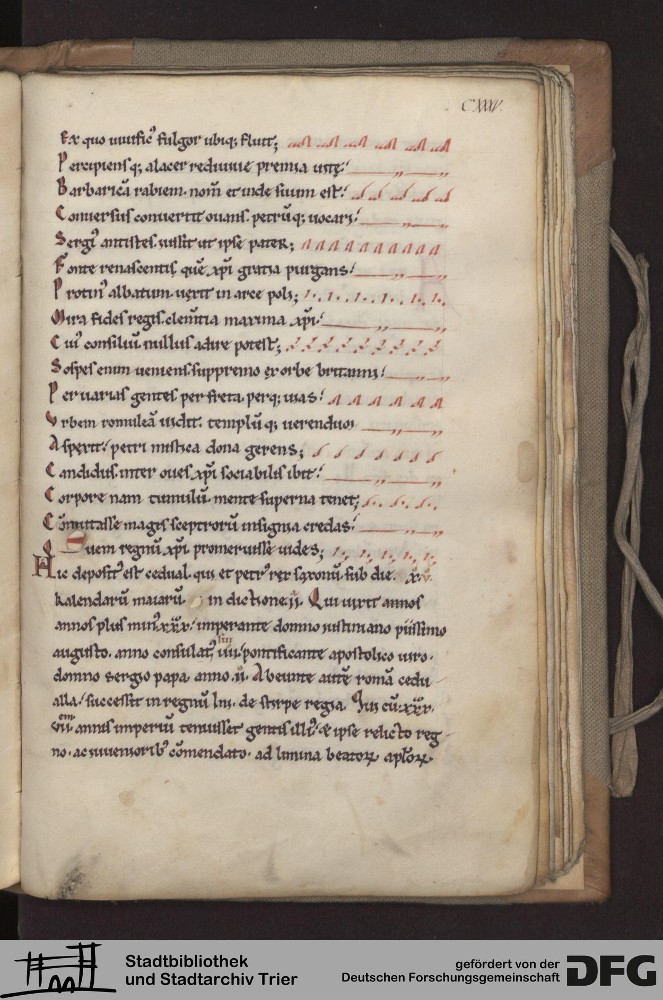 CXXXV.
Ex quo uiuific' fulgor ubiq; fluit;
Percipiensq; alacer rediuiue premia uitę.
Barbaricā rabiem. nom̄ et inde suum est.
Conuersus conuertit ouans. petrūq; uocari.
Sergi' antistes. iussit ut ipse pater;
Fonte renascentis. quē xp̄i gratia purgans.
Protin' albatum. uexit in arce poli;
Mira fides regis. clem̄tia maxima xp̄i.
Cui' consiliū. nullus adire potest;
Sospes enim ueniens. suppremo ex orbe britanni.
Per uarias gentes per freta. perq; uias.
Vrbem romuleā uidit. templūq; uerendum
Aspexit. petri mistica dona gerens;
Candidus. inter oues xp̄i sociabilis ibit.
Corpore nam tumulū. mente superna tenet;
Cōmutasse magis sceptrorū insignia credas.
Quem regnū xp̄i promeruisse uides;
Hic deposit' est cedual. qui et petr' rex saxonū. sub die. xii.
kalendarū maiarū. in dictione. ii. Qui uixit annos
annos plus min' xxx. imperante domno iustiniano piissimo
augusto. anno consulat' iiii. pontificante apostolico uiro.
domno sergio papa anno. ii. Abeunte autē romā cedu
alla. successit in regnū Ini. de stirpe regia. Qui cū. xxx.
vii. annis imperiū tenuisset gentis illi'. & ipse relicto reg
no. ac iuuenioribꝰ cōmendato. ad limina beatoꝝ apl̄oꝝ.
Stadtbibliothek
und Stadtarchiv Trier
gefördert von der
Deutschen Forschungsgemeinschaft
DFG